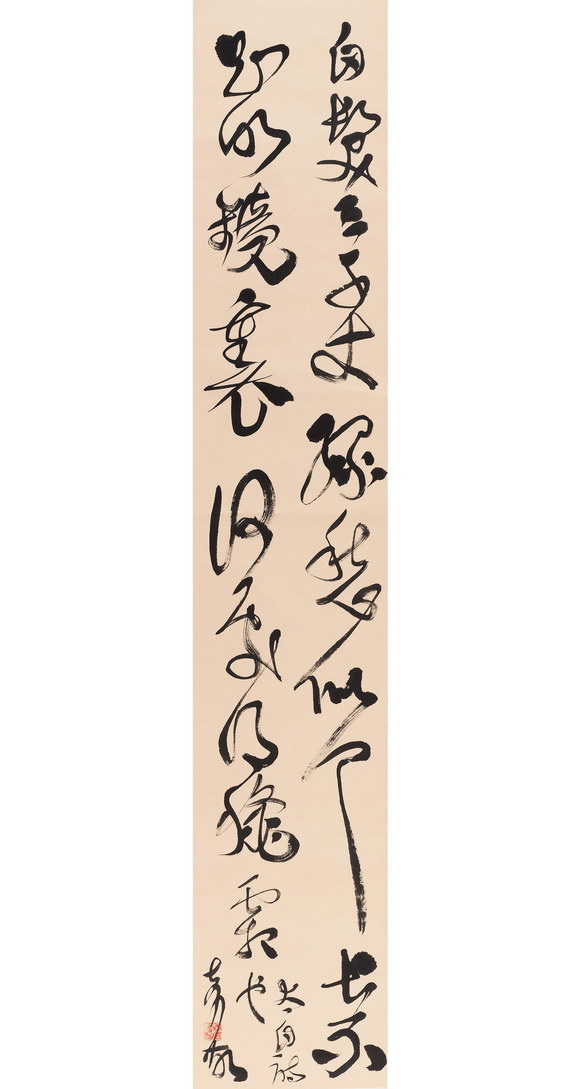 白髮三千丈緣愁似个長不
知明鏡裏何處得秋霜
太白詩
也